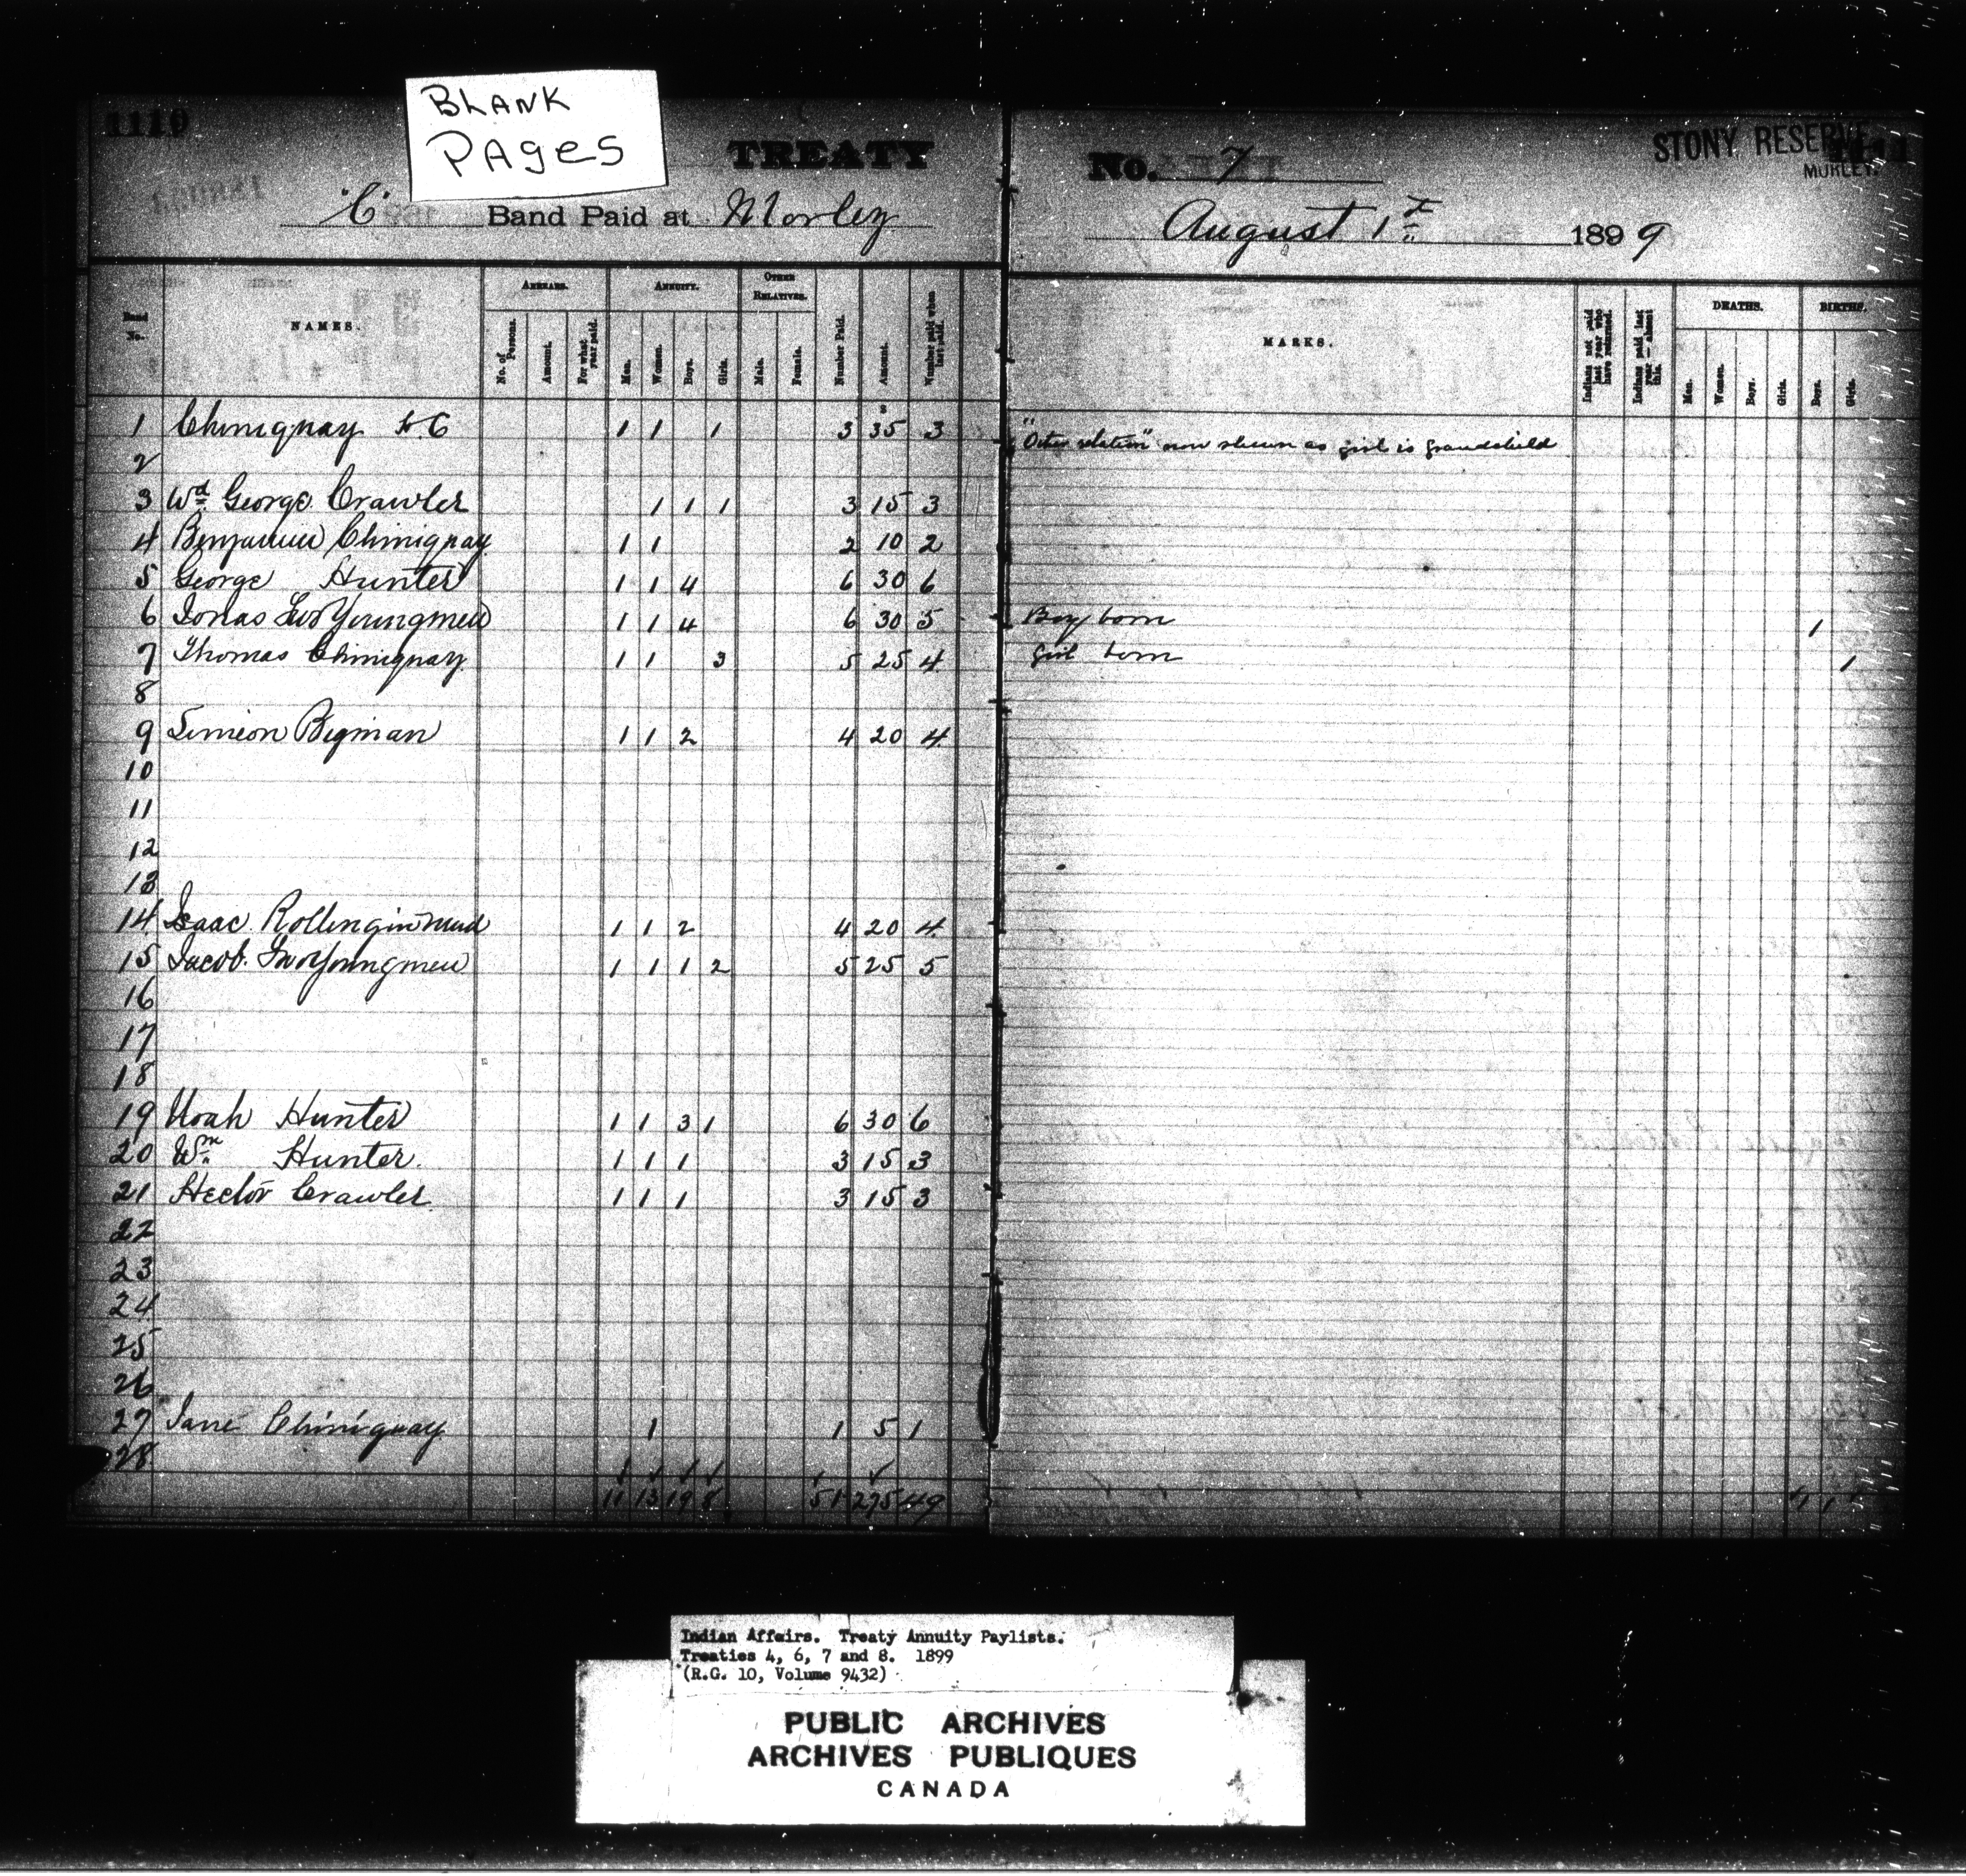 BLANK
PAGES
1110
TREATY
"C" Band Paid at Morley
No. 7
STONY RESERVE
MORLEY.
1111
August 1st 1899
Band No.
NAMES.
ARREARS.
No. of Persons.
Amount.
For what year paid.
ANNUITY.
Men.
Women.
Boys.
Girls.
OTHER RELATIVES.
Male.
Female.
Number Paid.
Amount.
Number paid when last paid.
MARKS.
Indians not paid last year who have returned.
Indians paid last year — absent this.
DEATHS.
Men.
Women.
Boys.
Girls.
BIRTHS.
Boys.
Girls.
1 Chiniquay H.C 1 1 1 3 35 3 "Other relation" now shewn as girl is grandchild
2
3 Wd George Crawler 1 1 1 3 15 3
4 Benjamin Chiniquay 1 1 2 10 2
5 George Hunter 1 1 4 6 30 6
6 Jonas TwoYoungmen 1 1 4 6 30 5 Boy born 1
7 Thomas Chiniquay 1 1 3 5 25 4 Girl born 1
8
9 Simeon Bigman 1 1 2 4 20 4
10
11
12
13
14 Isaac Rollinginmud 1 1 2 4 20 4
15 Jacob TwoYoungmen 1 1 1 2 5 25 5
16
17
18
19 Noah Hunter 1 1 3 1 6 30 6
20 Wm Hunter 1 1 1 3 15 3
21 Hector Crawler 1 1 1 3 15 3
22
23
24
25
26
27 Jane Chiniquay 1 1 5 1
28
11 13 19 8 51 275 49 1 1
Indian Affairs. Treaty Annuity Paylists.
Treaties 4, 6, 7 and 8. 1899
(R.G. 10, Volume 9432)
PUBLIC ARCHIVES
ARCHIVES PUBLIQUES
CANADA